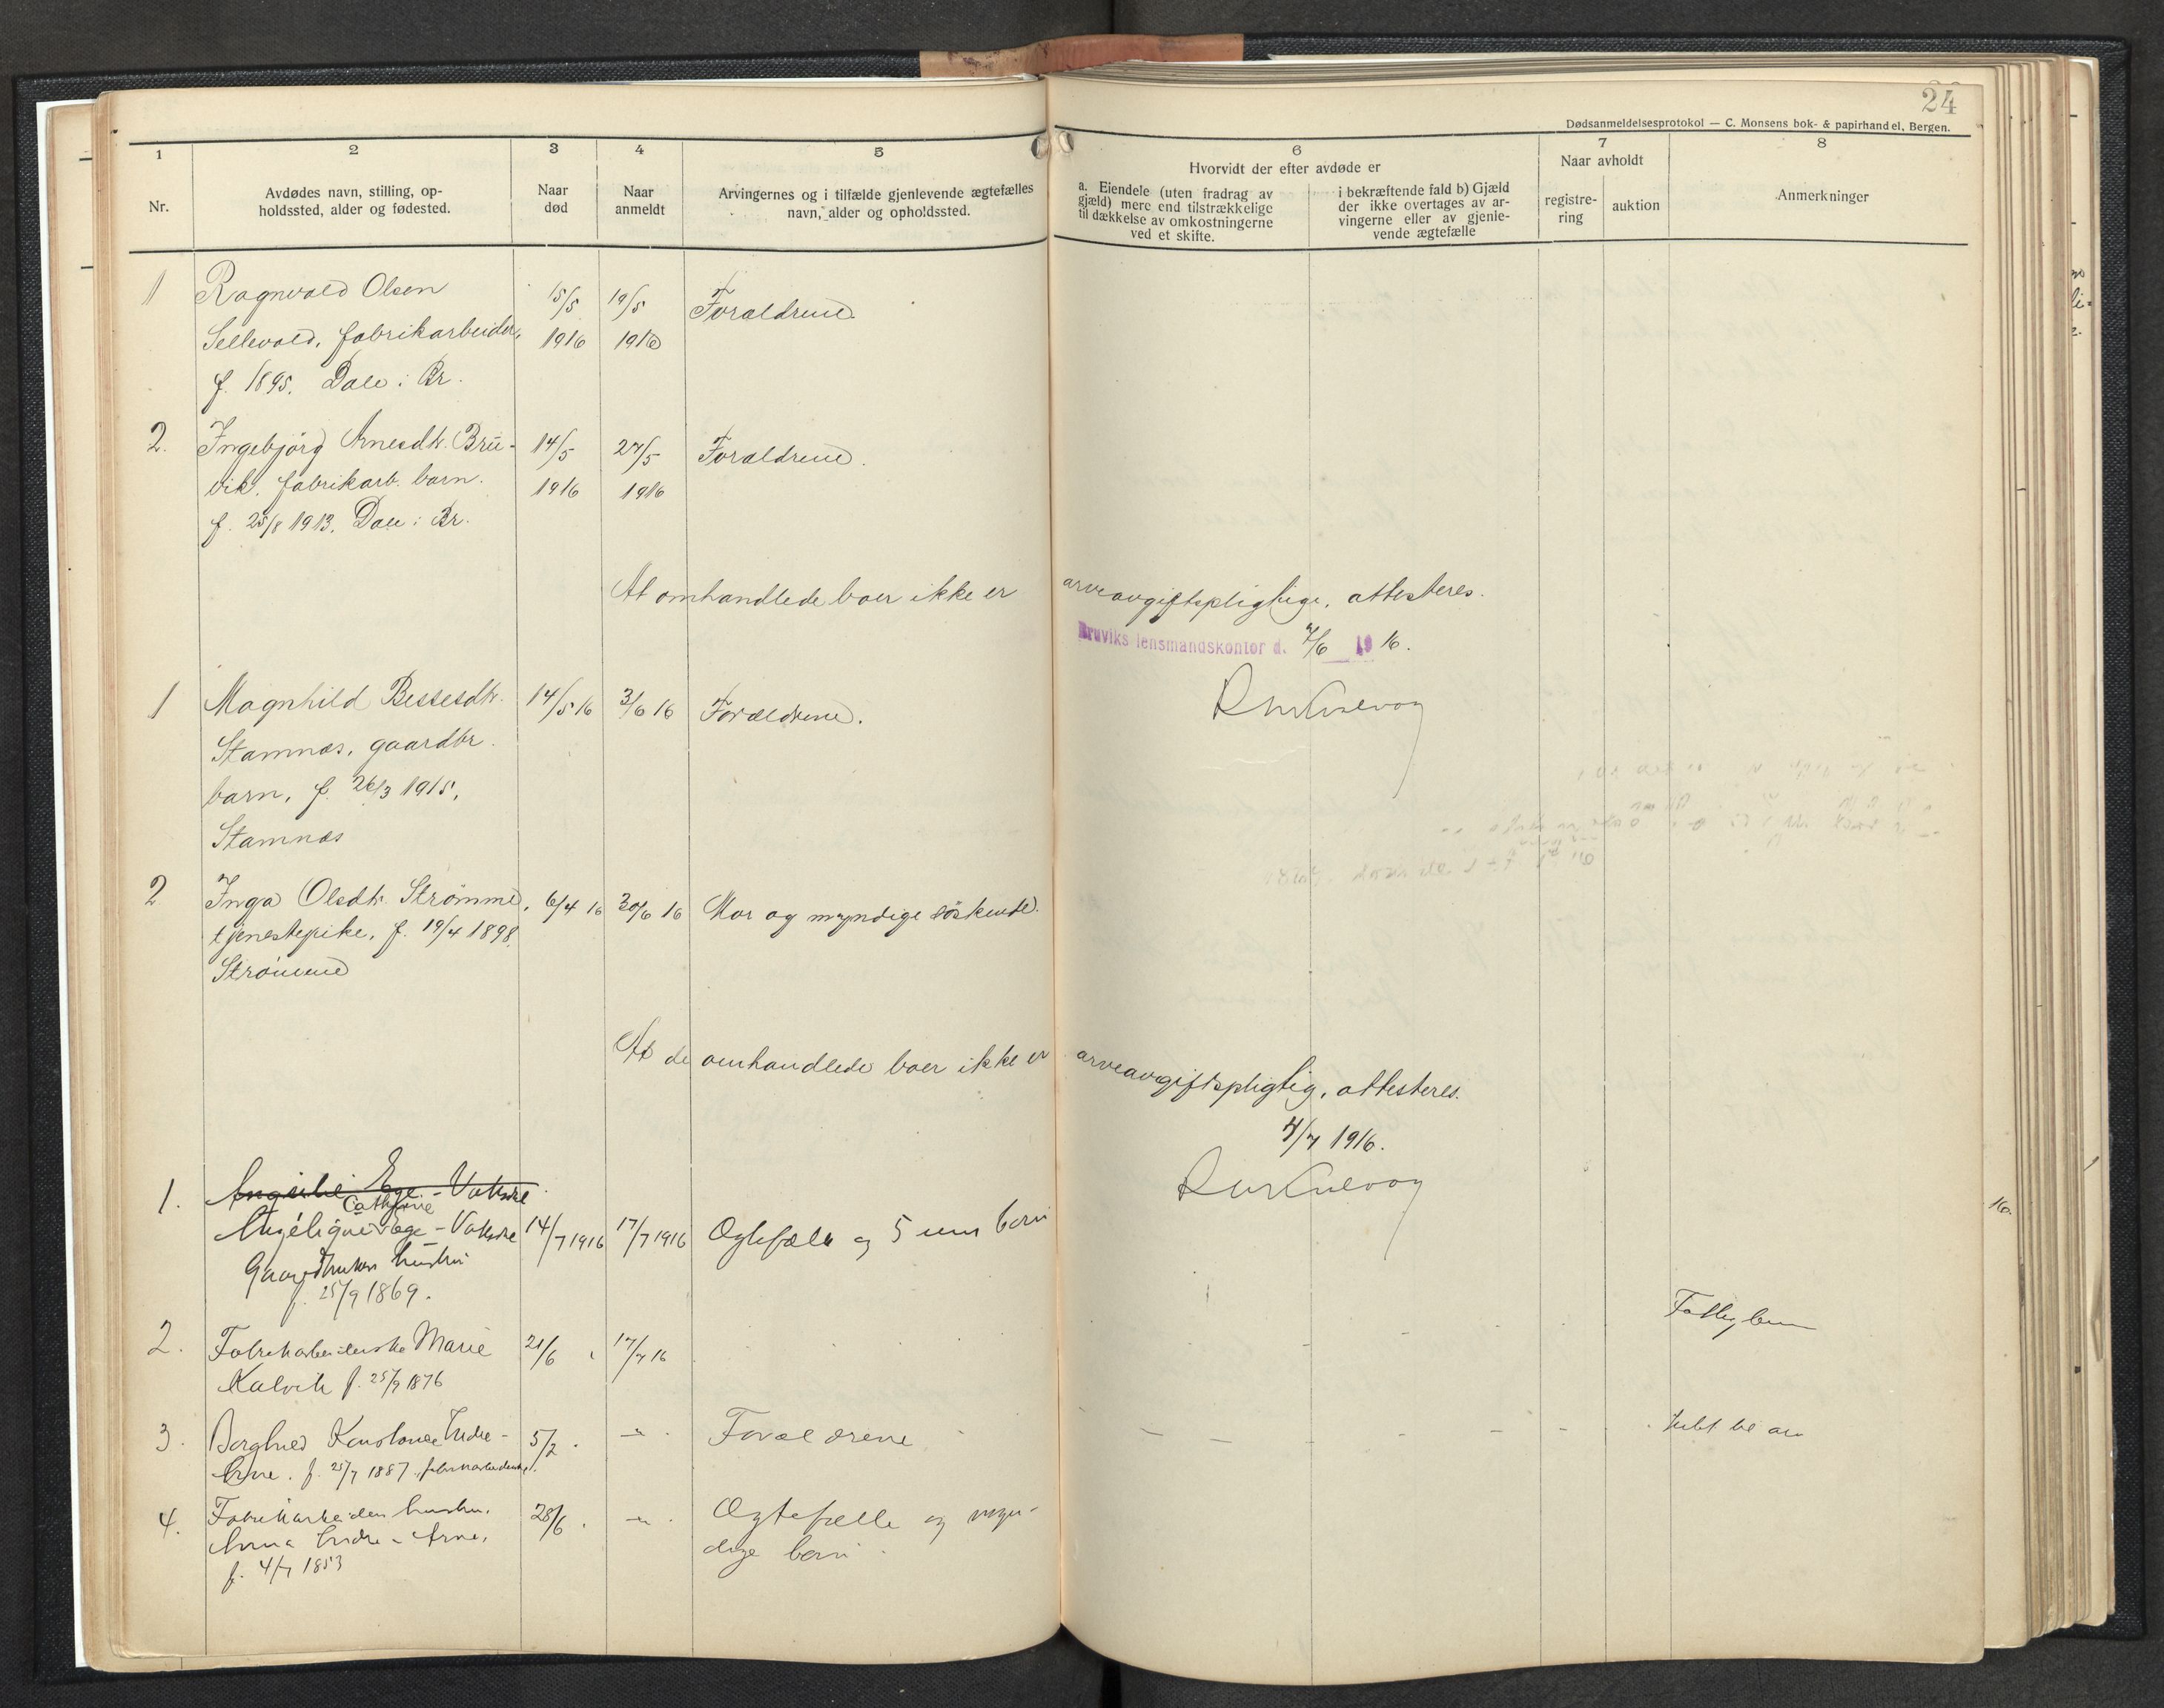 24
Dødsanmeldelsesprotokol — C. Monsens bok- & papirhandel, Bergen.
1
Nr.
2
Avdødes navn, stilling, op-
holdssted, alder og fødested.
3
Naar
død
4
Naar
anmeldt
5
Arvingernes og i tilfælde gjenlevende ægtefælles
navn, alder og opholdssted.
6
Hvorvidt der efter avdøde er
a. Eiendele (uten fradrag av
gjæld) mere end tilstrækkelige
til dækkelse av omkostningerne
ved et skifte.
i bekræftende fald b) Gjæld
der ikke overtages av ar-
vingerne eller av gjenle-
vende ægtefælle
7
Naar avholdt
registre-
ring
auktion
8
Anmerkninger
1 Ragnvald Olsen 15/5 19/5 Forældrene
Sellevold, fabrikarbeider, 1916 1916
f. 1895. Dale i Br.
2. Ingebjörg Arnesdtr. Bru- 14/5 27/5 Forældrene.
vik. fabrikarb. barn. 1916 1916
f. 25/8 1913. Dale i Br.
At omhandlede boer ikke er arveavgiftspligtige, attesteres.
Bruviks lensmandskontor d. 7/6 1916.
1 Magnhild Bessesdtr. 14/5 16 3/6 16 Forældrene.
Stamnæs, gaardbr.
barn, f. 26/3 1915,
Stamnæs
2 Inga Olsdtr. Strömme, 6/4 16 30/6 16 Mor og myndige söskende.
tjenestepike, f. 19/4 1898.
Strömme
At de omhandlede boer ikke er arveavgiftspligtig, attesteres.
4/7 1916.
1. Ege - Vaksdal
Cathrine
Angélique Ege - Vaksdal 14/7 1916 17/7 1916 Egtefælle og 5 um börn
Gaardbrukers hustru
f. 25/9 1869.
Fattiglem
2. Fabrikarbeiderske Marie 21/6 17/7 16
Kalvik f. 25/9 1876
3. Borghild Konstanse Indre - 5/2 - " - Forældrene
Arne. f. 25/7 1887. fabrikarbeiderske.
4. Fabrikarbeider hustru. 28/6 - " - Ægtefælle og myn-
Anna Indre - Arne, dige börn
f. 4/7 1853